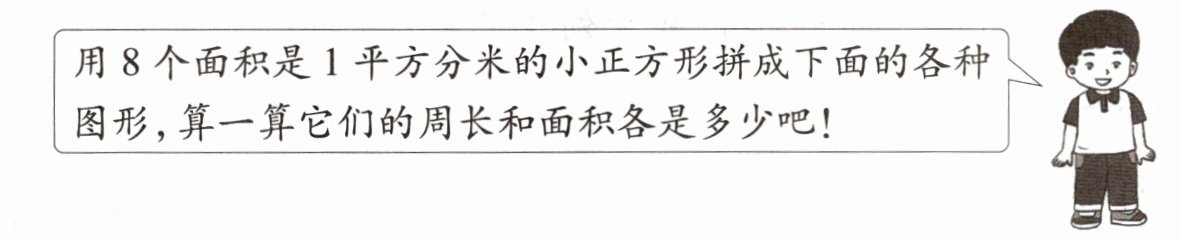 用 8 个面积是 1 平方分米的小正方形拼成下面的各种
图形,算一算它们的周长和面积各是多少吧!